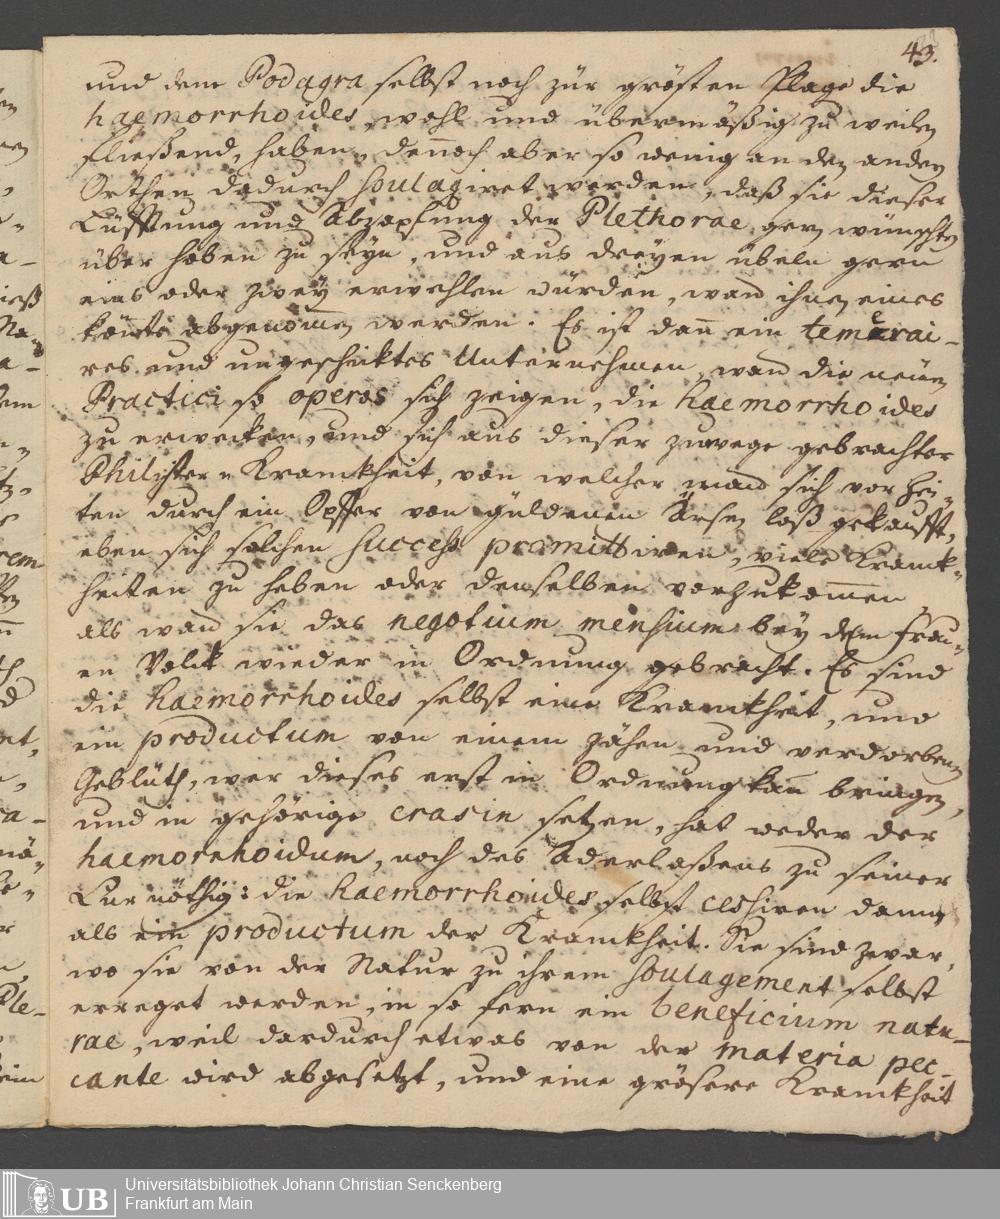 43.
und dem Podagra selbst noch zur grösten Plage die
haemorrhoides, wohl und übermäßig zu weilen
fließend, haben, dennoch aber so wenig an den andern
Orthen dadurch soulagiret werden, daß sie dieser
Lüfftung und Abzapfung der Plethorae gern wünschten
über hoben zu seyn, und aus dreyen übeln gern
eins oder zwey erwehlen würden, wan ihnen eines
könte abgenomen werden. Es ist dann ein temerai-
res und ungeschicktes Unternehmen, wan die neuen
Practici so operos sich zeigen, die haemorrhoides
zu erwecken, und sich aus dieser zuwege gebrachten
Philister-Kranckheit, von welcher man sich vor Zei-
ten durch ein Opffer von güldenen Ärsen loß gekaufft,
eben sich solchen success promittiren, viele Kranck-
heiten zu heben oder denselben vorzukommen
als wan sie das negotium mensium bey dem Frau-
en Volck wieder in Ordnung gebracht. Es sind
die haemorrhoides selbst eine Kranckheit, und
ein productum von einem zähen und verdorbenen
Geblüth, wer dieses erst in Ordnung kan bringen,
und in gehörige crasin setzen, hat weder der
haemorrhoidum, noch des Aderlaßens zu seiner
Cur nöthig: die haemorrhoides selbst cessiren dann
als ein productum der Kranckheit. Sie sind zwar,
wo sie von der Natur zu ihrem soulagement selbst
erreget werden, in so fern ein beneficium natu-
rae, weil dardurch etwas von der materia pec-
cante wird abgesetzt, und eine grösere Kranckheit
Universitätsbibliothek Johann Christian Senckenberg
Frankfurt am Main
UB